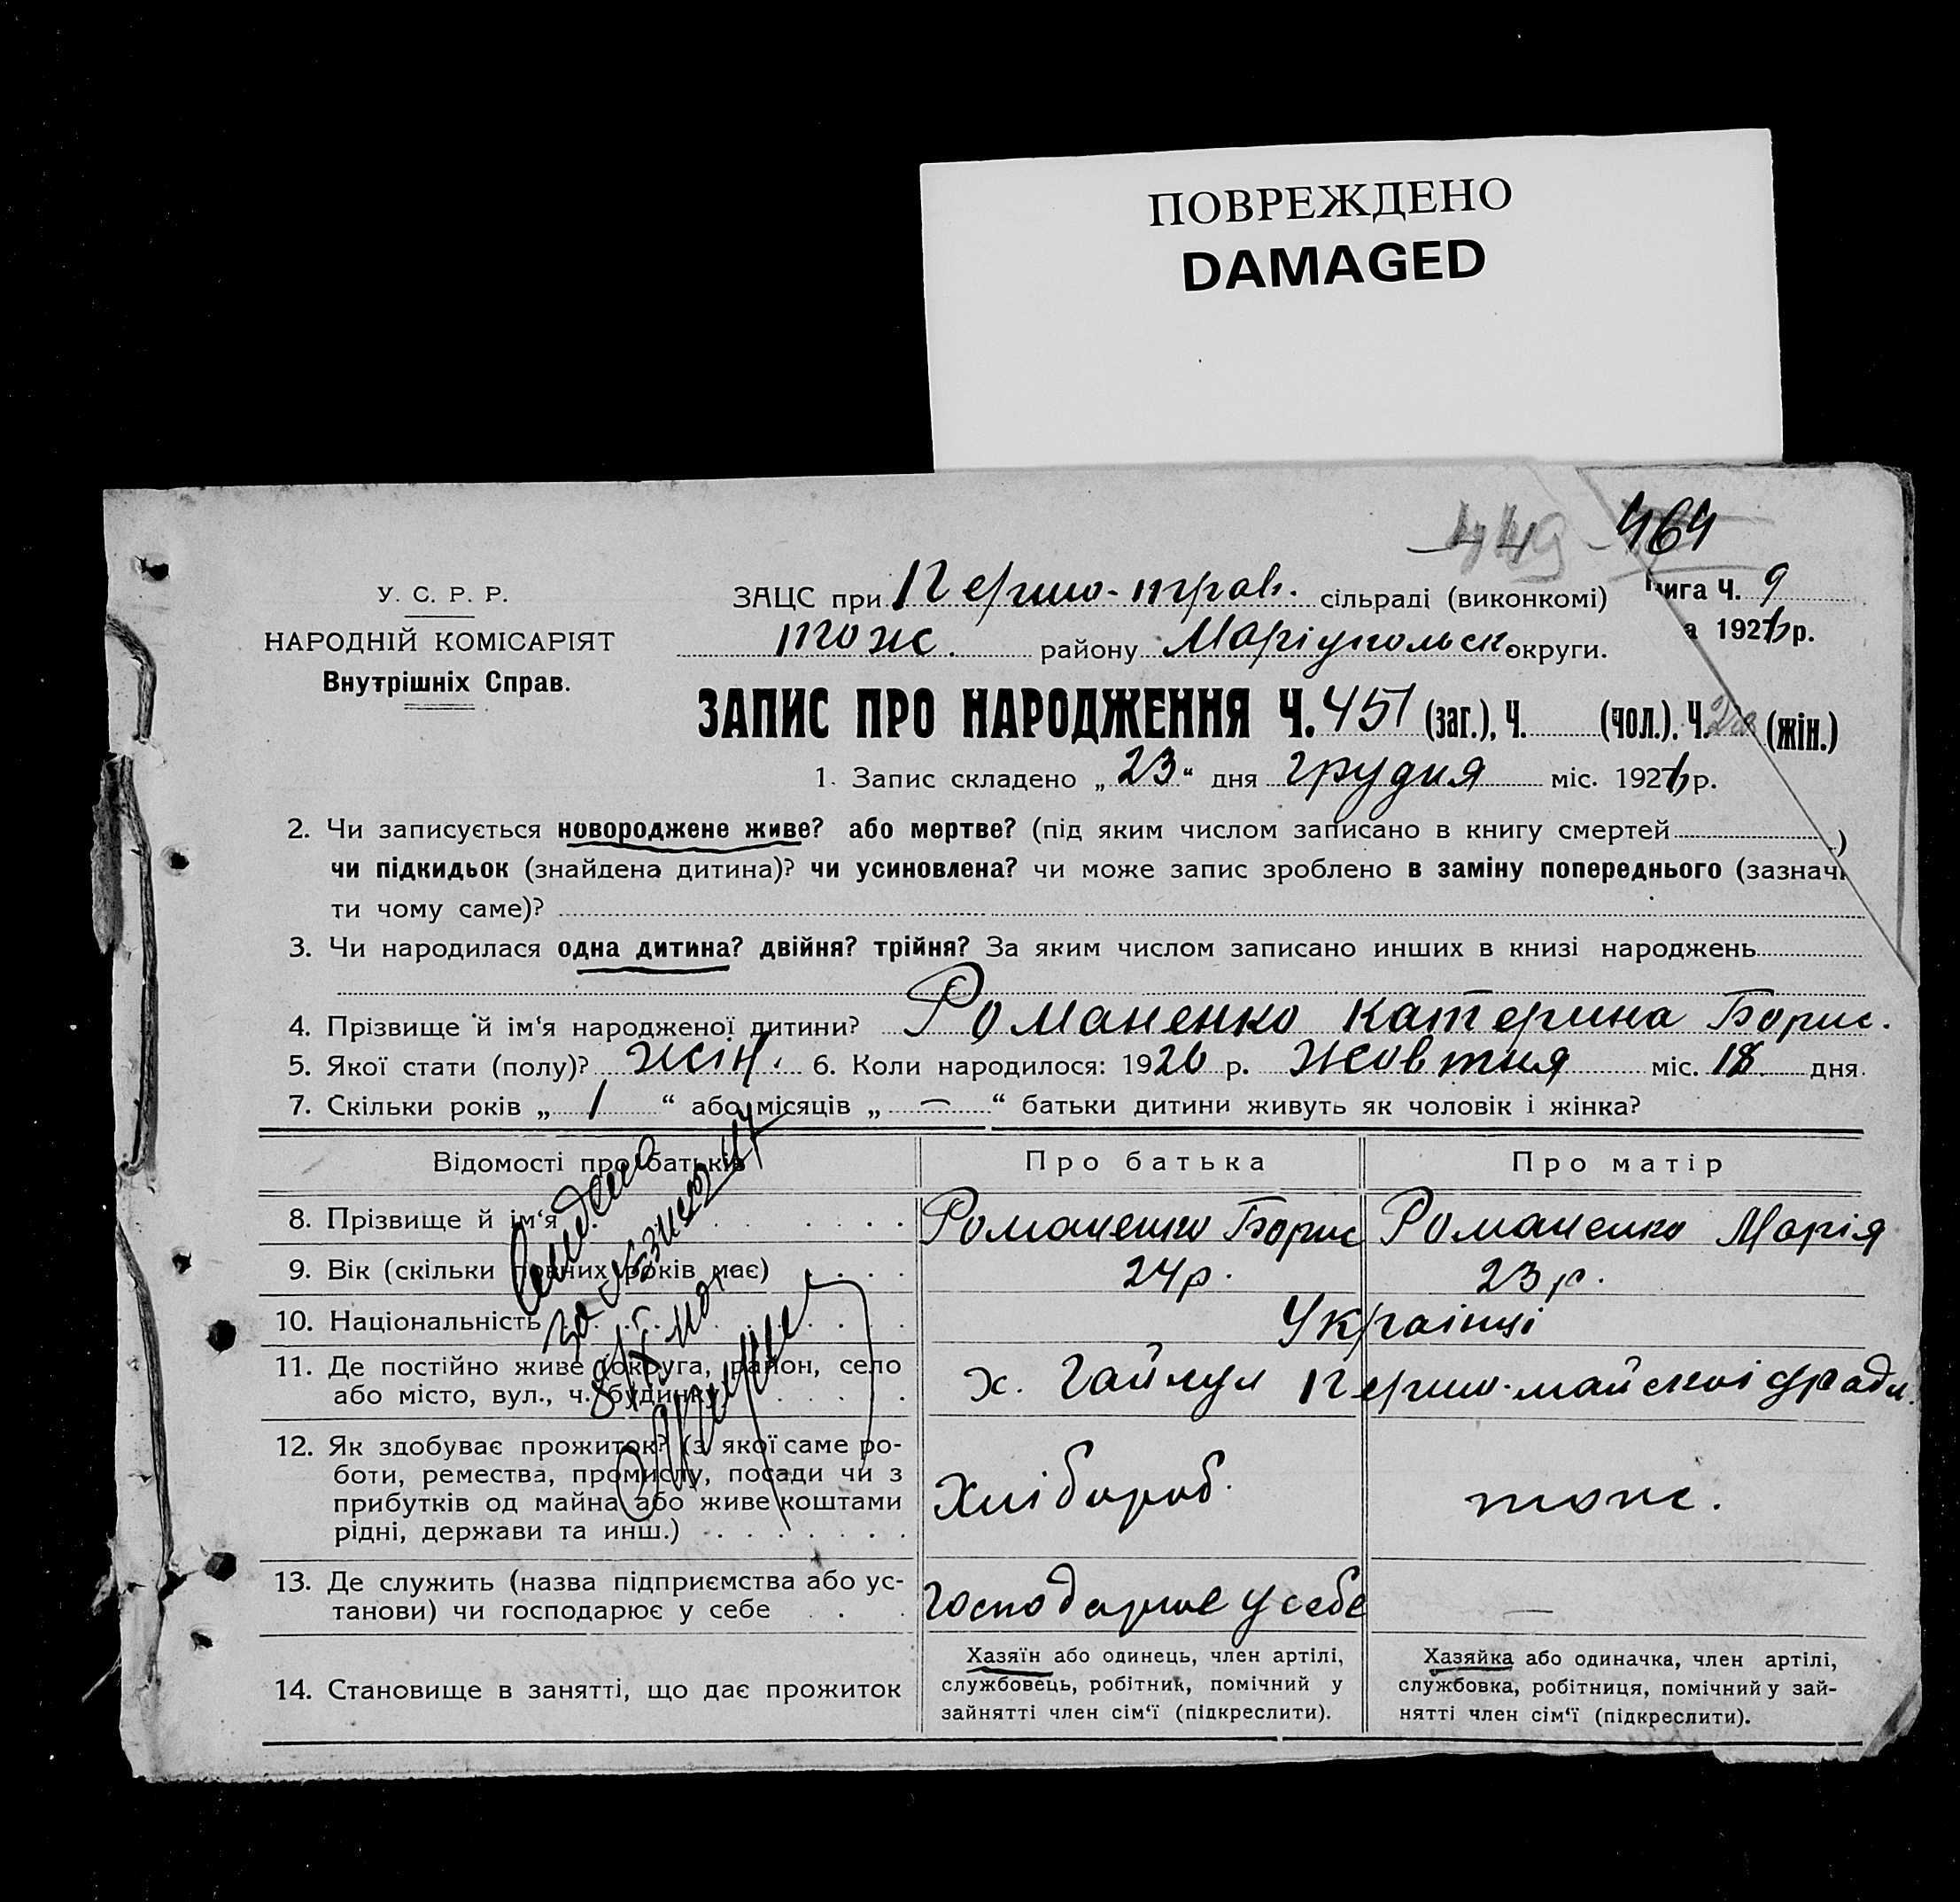 ПОВРЕЖДЕНО
DAMAGED
449 464
У. С. Р. Р.
НАРОДНІЙ КОМІСАРІЯТ
Внутрішніх Справ.
ЗАЦС при Першо-трав. сільраді (виконкомі)
тож. району Маріупольск округи.
ига Ч. 9
а 1926 р.
ЗАПИС ПРО НАРОДЖЕННЯ Ч. 451 (заг.), Ч. (чол.). Ч. (жін.)
1. Запис складено „ 23 “ дня грудня міс. 1926 р.
2. Чи записується новороджене живе? або мертве? (під яким числом записано в книгу смертей )
чи підкидьок (знайдена дитина)? чи усиновлена? чи може запис зроблено в заміну попереднього (зазначи
ти чому саме)?
3. Чи народилася одна дитина? двійня? трійня? За яким числом записано инших в книзі народжень
4. Прізвище й ім‘я народженої дитини? Романенко Катерина Борис.
5. Якої стати (полу)? жін. 6. Коли народилося: 1926 р. жовтня міс. 18 дня
7. Скільки років „ 1 “ або місяців „ — “ батьки дитини живуть як чоловік і жінка?
Відомості про батьків
Про батька
Про матір
8. Прізвище й ім‘я
Романенко Борис
Романенко Марія
9. Вік (скільки повних років має)
24 р.
23 р.
10. Національність
Українці
11. Де постійно живе (округа, район, село
або місто, вул., ч. будинку)
х. Першо-майскої
12. Як здобуває прожиток? (з якої саме ро-
боти, ремества, промислу, посади чи з
прибутків од майна або живе коштами
рідні, держави та инш.)
Хлібороб.
тож.
13. Де служить (назва підприємства або ус-
танови) чи господарює у себе
господарює у себе
—
14. Становище в занятті, що дає прожиток
Хазяїн або одинець, член артілі,
службовець, робітник, помічний у
зайнятті член сім‘ї (підкреслити).
Хазяйка або одиначка, член артілі,
службовка, робітниця, помічний у зай-
нятті член сім‘ї (підкреслити).